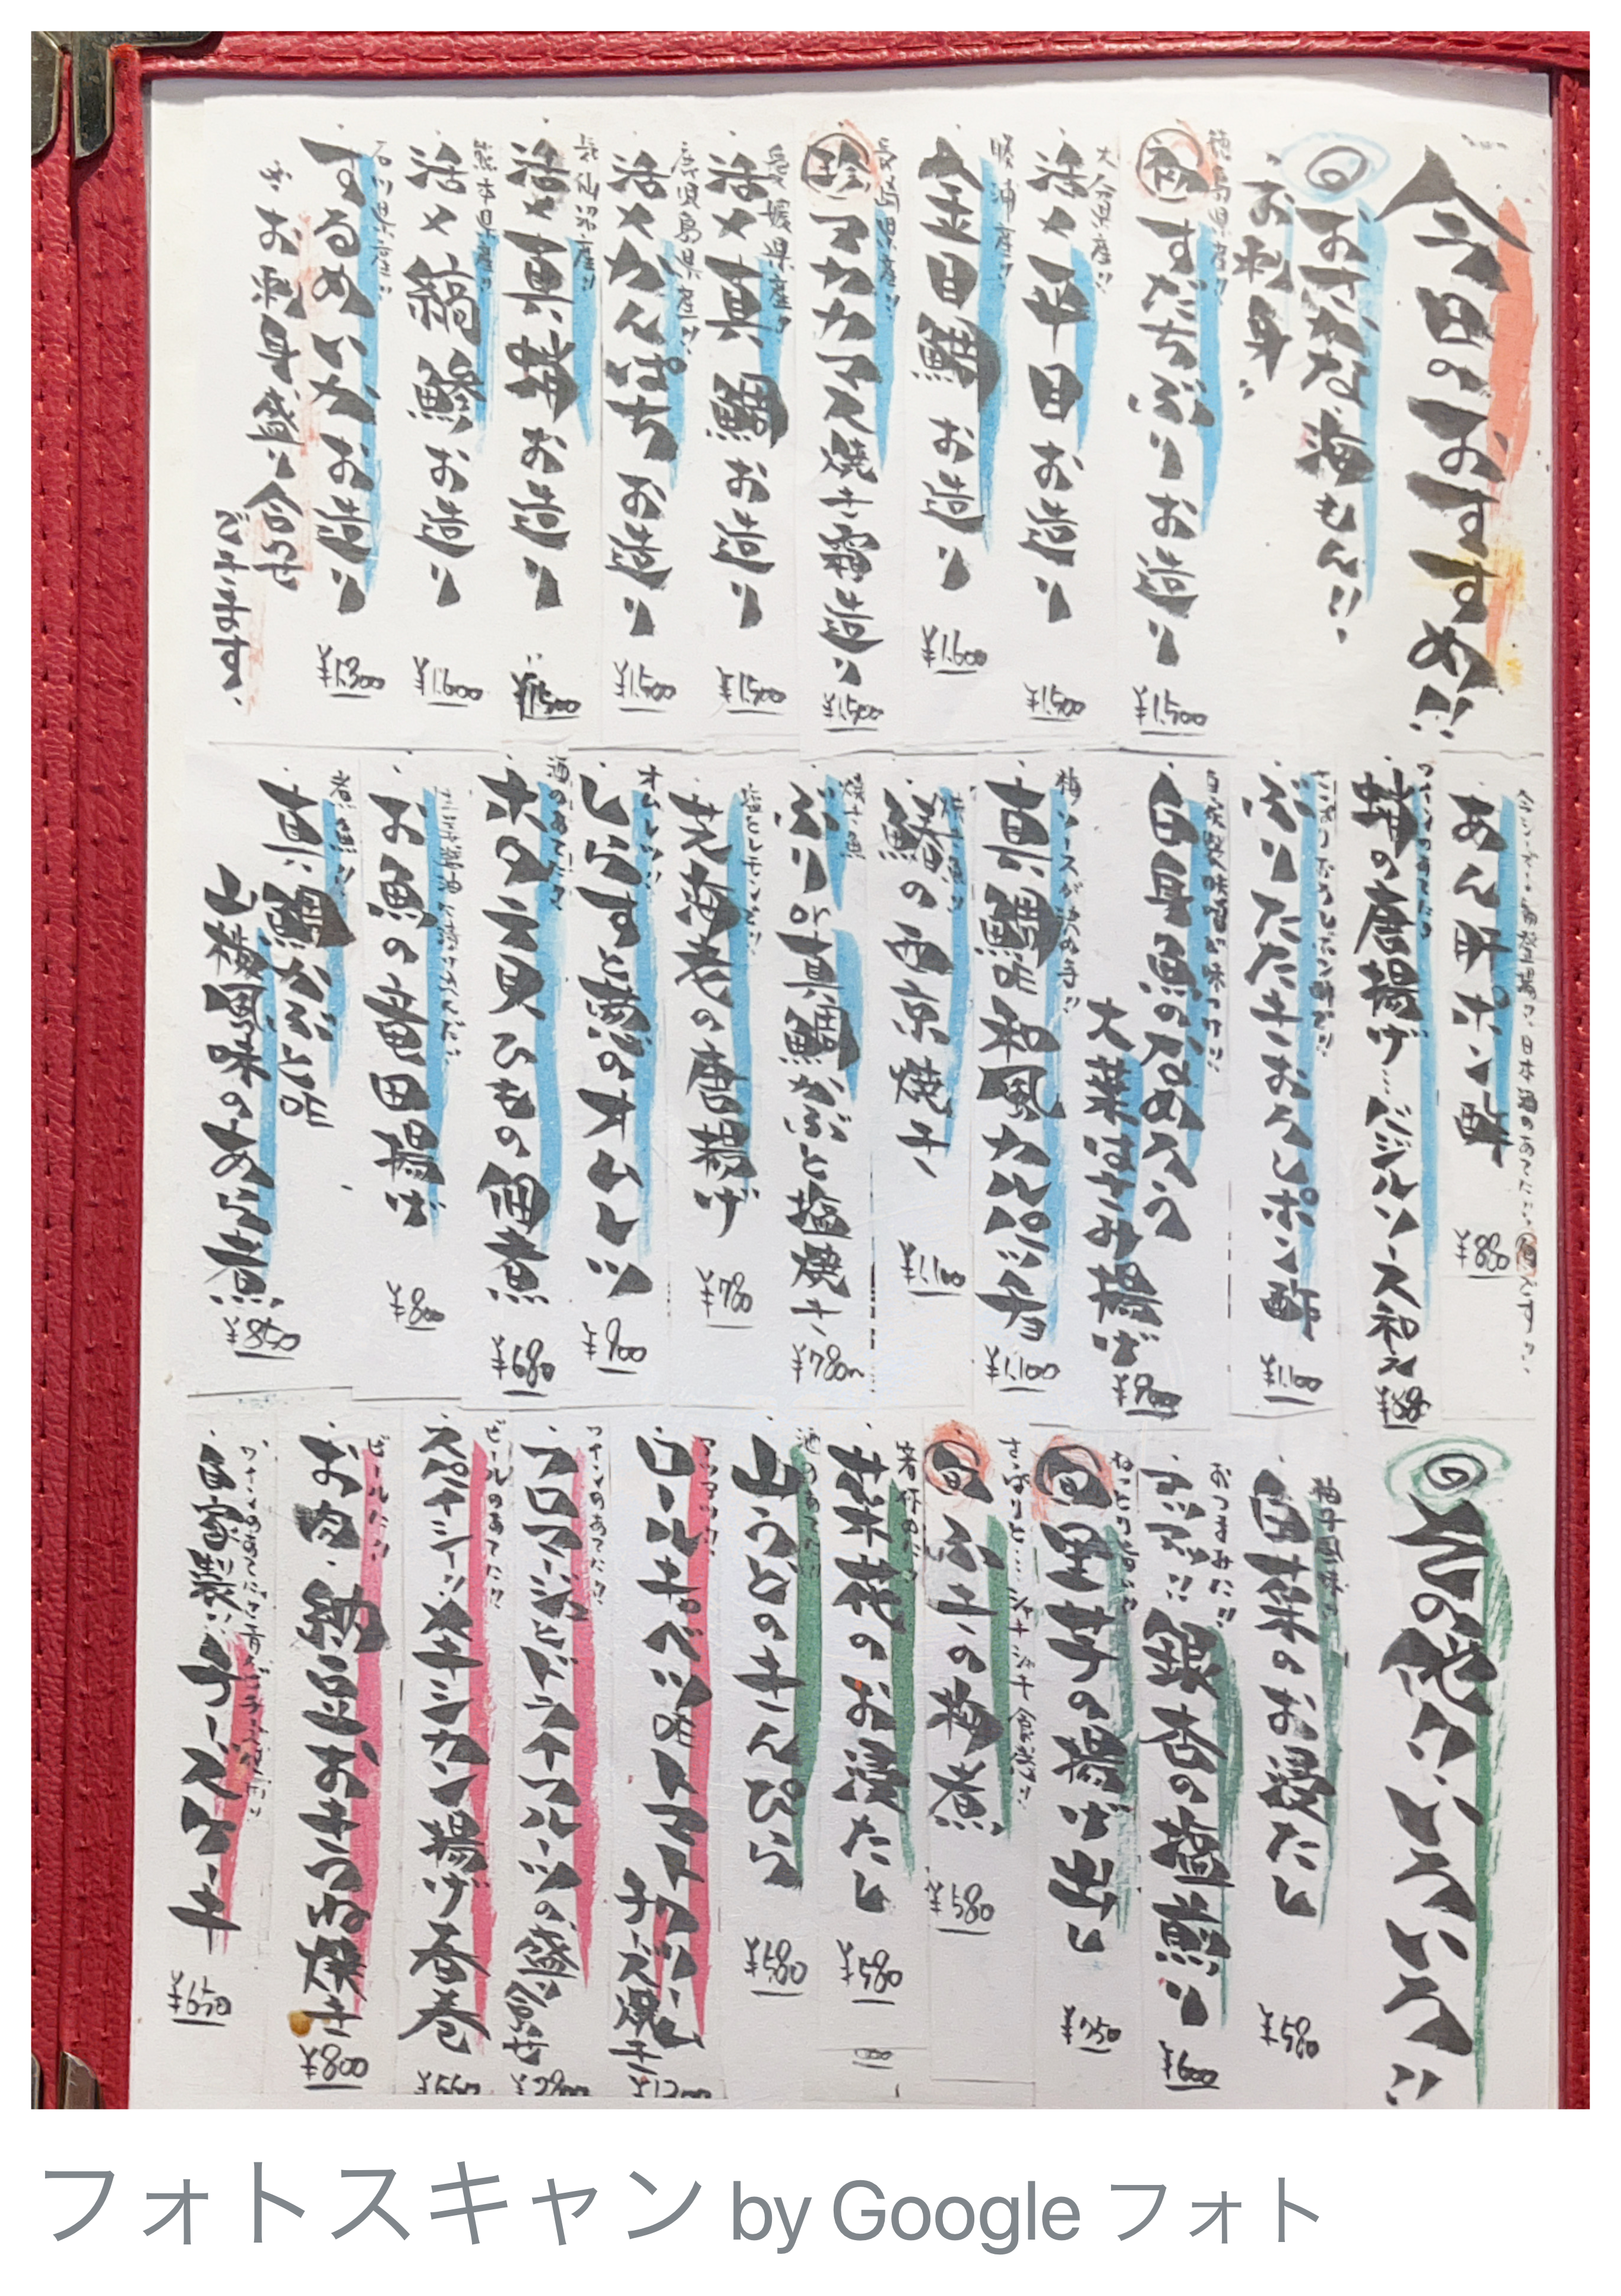 今日のおすすめ!!
◎おさかな海もん!!
・お刺身・
徳島県産!!
初 すだちぶりお造り
¥1,500
大分県産!!
・活〆平目お造り
¥1,500
勝浦産!!
・金目鯛お造り
¥1,600
長崎県産!!
珍 アカカマス焼き霜造り
¥1,500
愛媛県産!!
・活〆真鯛お造り
¥1,500
鹿児島県産!!
・活〆かんぱち お造り
¥1,500
気仙沼産!!
・活〆真 お造り
¥1,500
熊本県産!!
・活〆縞鯵お造り
¥1,600
石川県産!!
・するめいかお造り
¥1,300
※お刺身盛り合せ
できます、
今シーズン初登場!!、日本酒のあてに… です!!、
・あん肝ポン酢
¥880
ワインのあてに!!
・蛸の唐揚げ…バジルソース和え
さっぱりおろしポン酢で!!
・ぶりたたきおろしポン酢
¥1,100
自家製味噌で味つけ!!
・白身魚のなめろう
大葉はさみ揚げ
¥900
梅ソースが決め手!!
・真鯛の和風カルパッチョ
¥1,100
焼き魚!!
・鰆の西京焼き
¥1,100
焼き魚
・ぶりor真鯛かぶと塩焼き
¥780〜
塩とレモンで!!
・芝海老の唐揚げ
¥780
オムレツ!!
・しらすと葱のオムレツ
¥900
酒のあてに!!
・ホタテ貝ひもの佃煮
¥680
・お魚の竜田揚げ
¥800
煮魚!!
・真鯛かぶとの
山椒風味のあら煮
¥850
◎その他!!いろいろ!!
柚子風味!!
・白菜のお浸たし
¥580
おつまみに!!
・アツアツ!!銀杏の塩煎り
¥600
ねっとり旨い!!
旬 里芋の揚げ出し
¥750
さっぱりと…シャキシャキ食感!!
旬 ふきの梅煮
¥580
・菜花のお浸たし
¥580
酒のあて!!
・山うどのきんぴら
¥580
アツアツ!!
・ロールキャベツのトマトクリーム
チーズ焼き
ワインのあてに!!
・フロマージュとドライフルーツの盛り合せ
ビールのあてに!!
・スパイシー!!メキシカン揚げ春巻
¥550
ビールに!!
・お肉・納豆おきつね焼き
¥800
・自家製!!チーズケーキ
¥650
フォトスキャン by Google フォト